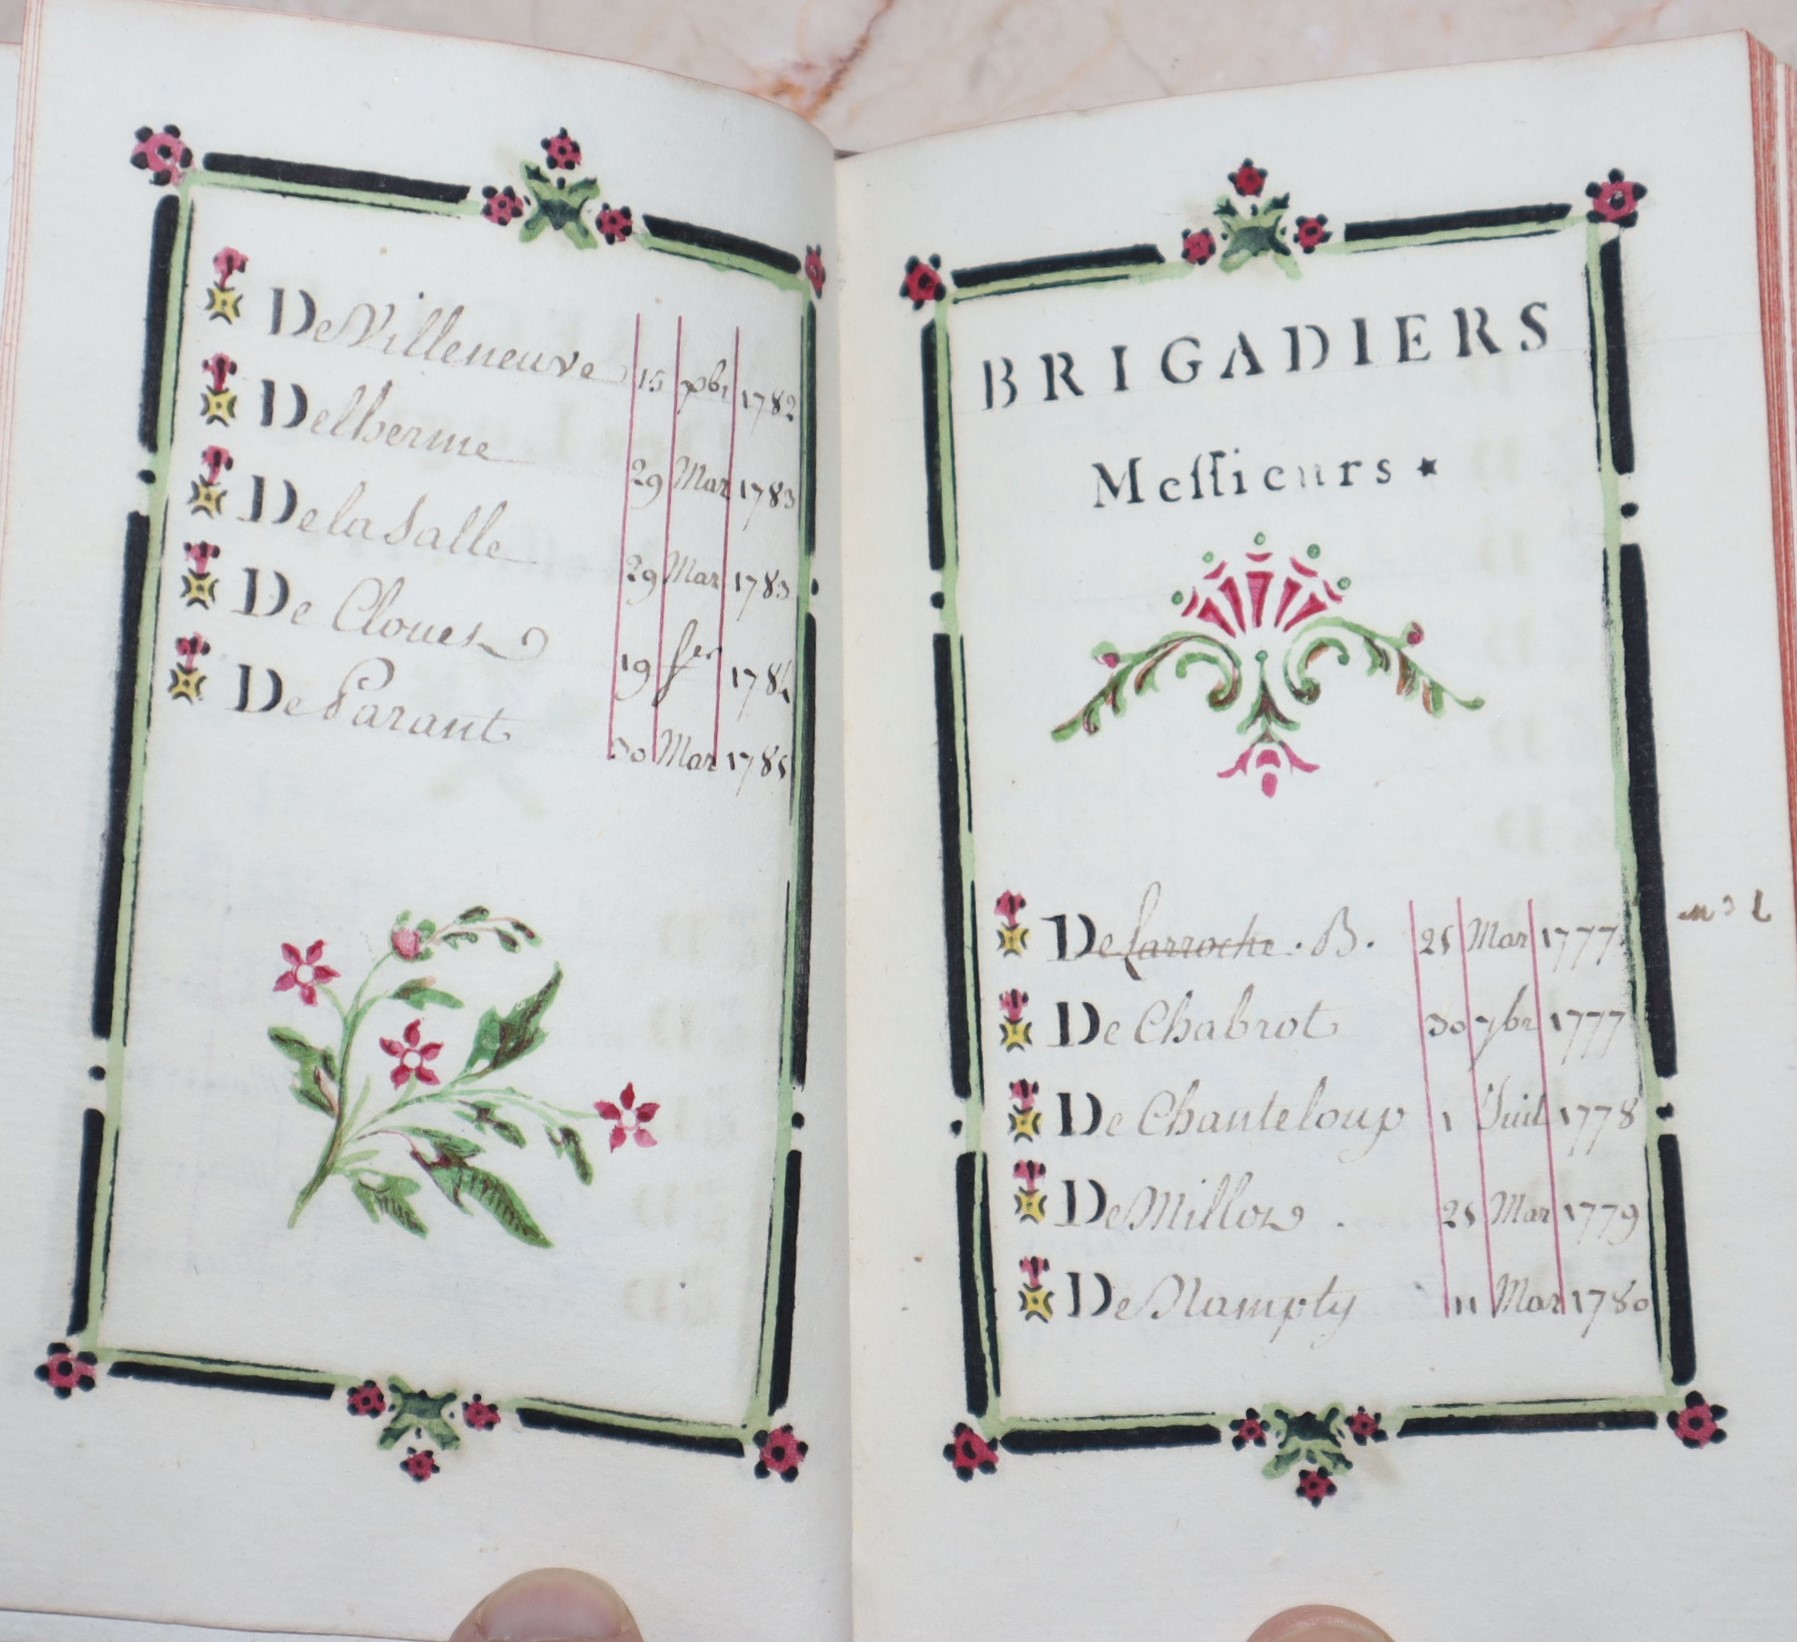 De Villeneuve 15 9br 1782
Delherme 29 Mar 1783
De la Salle 29 Mar 1783
De Clouez 19 fer 1784
De Parant 30 Mar 1785
BRIGADIERS
Meſſieurs ★
De Larroche . B. 25 Mar 1777
De Chabrot 30 7br 1777
De Chanteloup 1 Juil 1778
De Milloz . 25 Mar 1779
De Nampty 11 Mar 1780